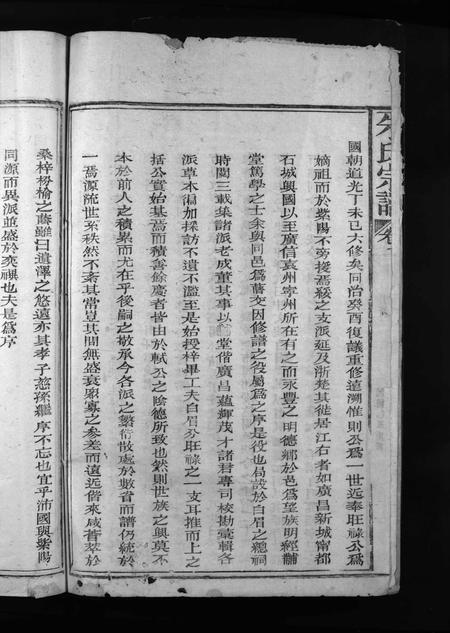 朱氏宗譜 卷
國朝道光丁未已六修矣同治癸酉復議重修遠溯惟則公爲一世近奉旺祿公爲
嫡祖而於紫陽不旁援焉綴之支派延及浙楚其徙居江右者如廣昌新城甯都
石城興國以至廣信袁州甯州所在有之而永豐之明德鄉於邑爲望族明經黼
堂篤學之士余與同邑爲舊交因修譜之役屬爲之序是役也局設於白眉之總祠
時閱三載集諸派老成董其事以黼堂偕廣昌蘊輝茂才諸君專司校勘彙輯各
派草本徧加採訪不遺不濫至是始授梓畢工夫白眉公旺祿之一支耳推而上之
括公實始基焉而積善餘慶者皆由於軾公之陰德所致也然則世族之興莫不
本於前人之積累而尤在乎後嗣之敬承今各派之繁衍散處於數省而譜仍統於
一焉源流世系秩然不紊其當豈其間無盛衰衆寡之參差而遠近偕來咸薈萃於
桑梓枌榆之蔭雖曰遺澤之悠遠亦其孝子慈孫繼序不忘也宜乎沛國與紫陽
同源而異派並盛於奕禩也夫是爲序